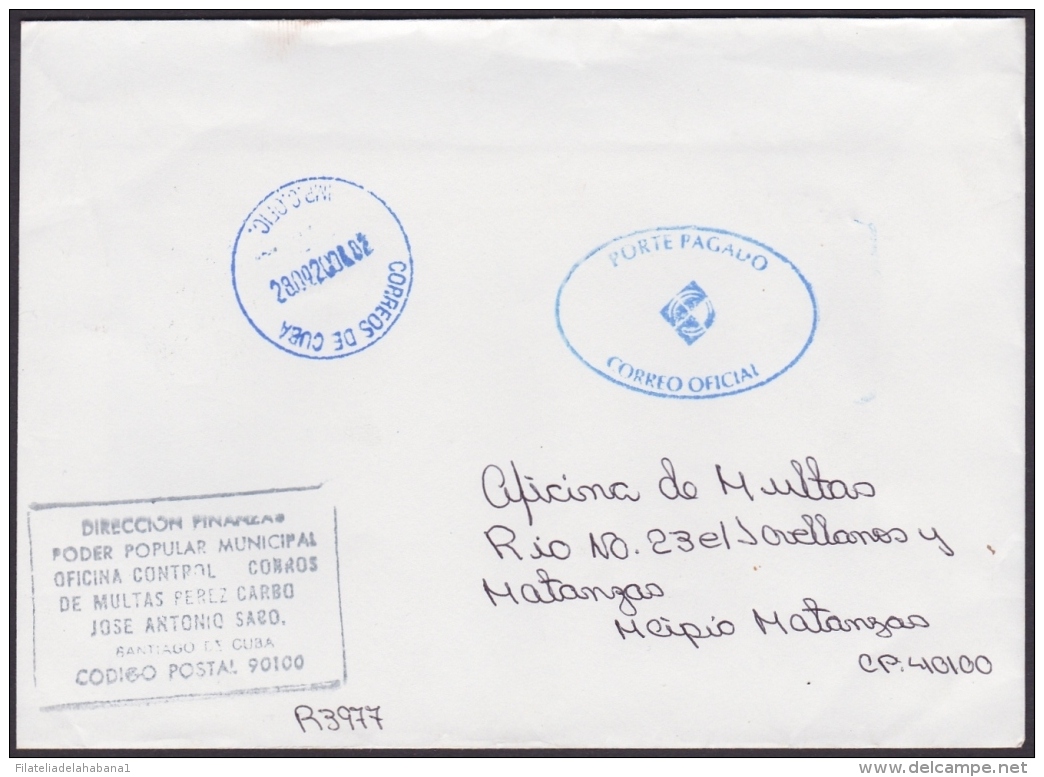 IMP.C.OFIC.
CORREOS DE CUBA
PORTE PAGADO
CORREO OFICIAL
Oficina de Multas
Rio No. 23 e/ Jovellanos y
Matanzas
Mcipio Matanzas
CP. 40100
DIRECCION FINANZAS
PODER POPULAR MUNICIPAL
OFICINA CONTROL COBROS
DE MULTAS PEREZ CARBO
JOSE ANTONIO SACO.
SANTIAGO DE CUBA
CODIGO POSTAL 90100
R3977
Filateliadelahabana1
delcampe.net